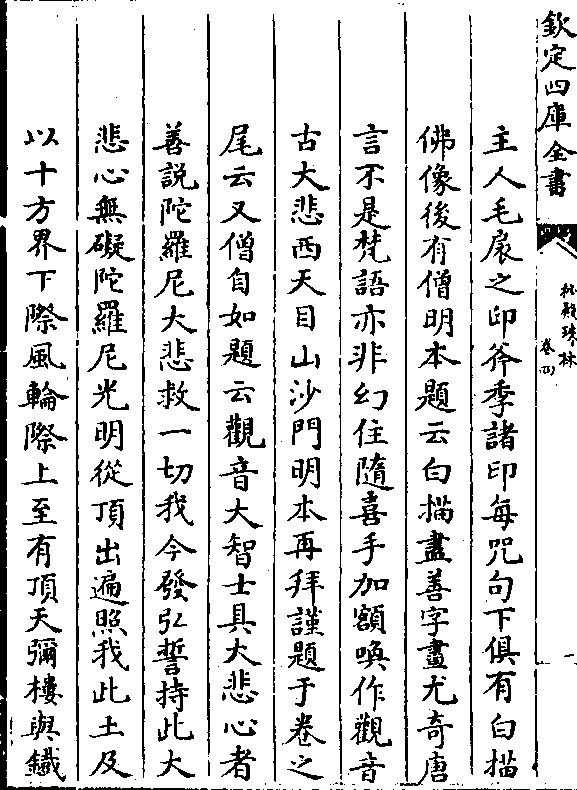 欽定四庫全書
秘殿珠林
卷四
一
主人毛扆之印斧季諸印每咒句下俱有白描
佛像後有僧明本題云白描畫善字畫尤奇唐
言不是梵語亦非幻住隨喜手加額喚作觀音
古大悲西天目山沙門明本再拜謹題于卷之
尾云又僧自如題云觀音大智士具大悲心者
善説陀羅尼大悲救一切我今發弘誓持此大
悲心無礙陀羅尼光明從頂出遍照我此土及
以十方界下際風輪際上至有頂天彌樓與鐵